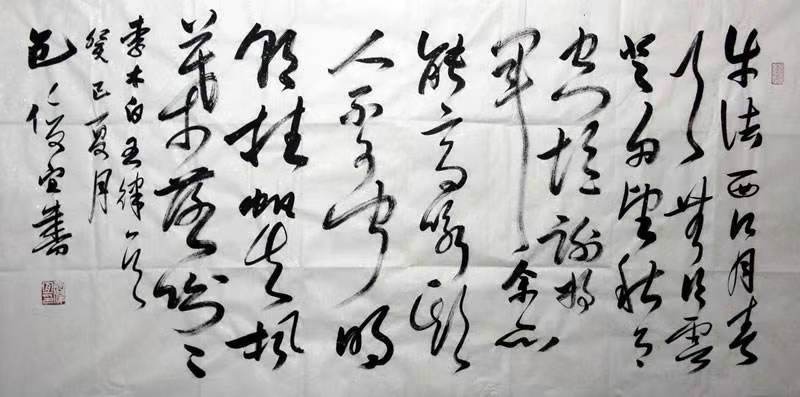 牛渚西江月青
天無片雲
登舟望秋月
空憶謝將
軍余亦
能高詠斯
人不可聞明
朝挂帆去楓
葉落紛々
李太白五律一首
癸巳夏月
包俊宜書